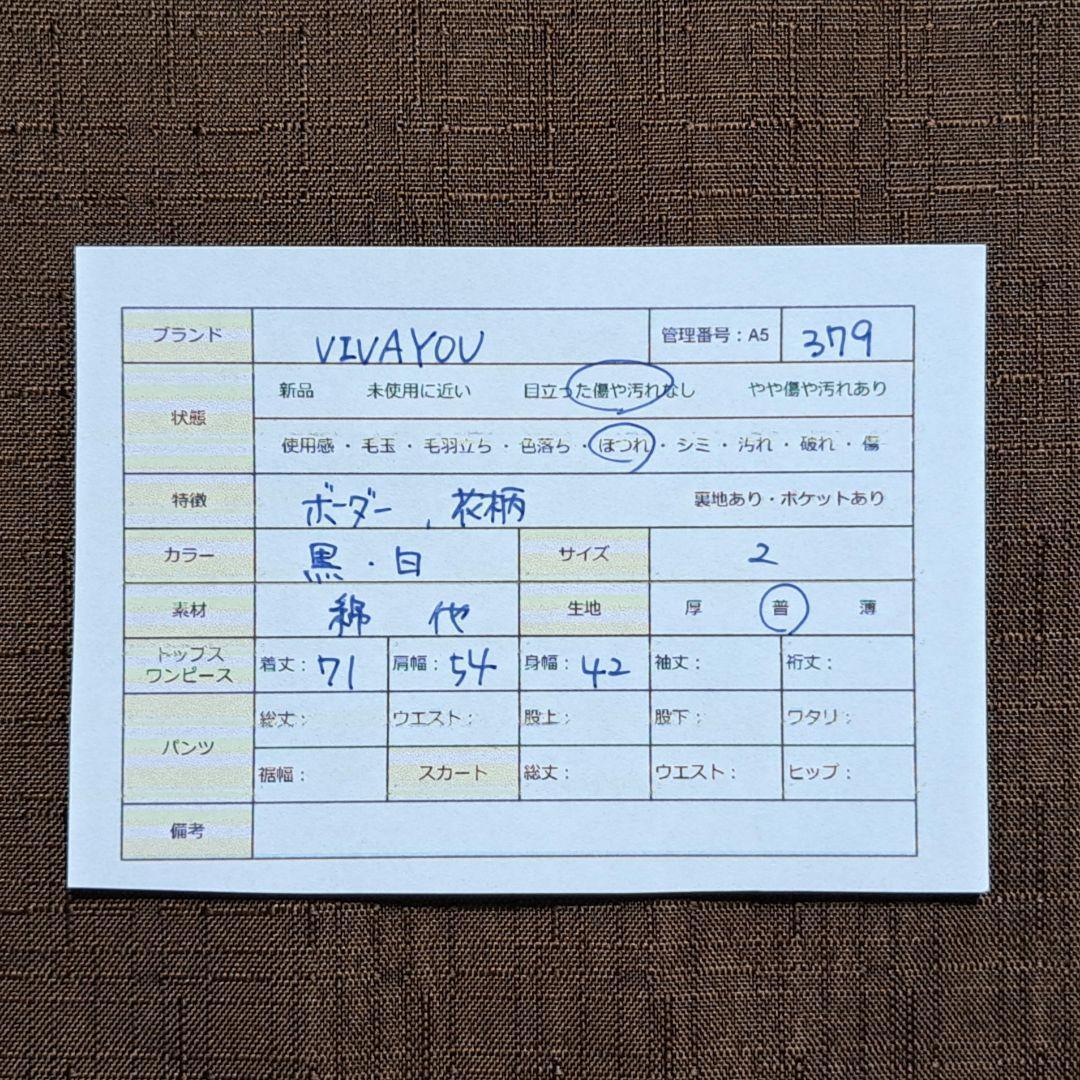 ブランド VIVAYOU 管理番号：A5 379
状態 新品 未使用に近い 目立った傷や汚れなし やや傷や汚れあり
使用感・毛玉・毛羽立ち・色落ち・ほつれ・シミ・汚れ・破れ・傷
特徴 ボーダー、花柄 裏地あり・ポケットあり
カラー 黒・白 サイズ 2
素材 綿 他 生地 厚 普 薄
トップス ワンピース 着丈：71 肩幅：54 身幅：42 袖丈： 裄丈：
パンツ 総丈： ウエスト： 股上： 股下： ワタリ：
裾幅： スカート 総丈： ウエスト： ヒップ：
備考